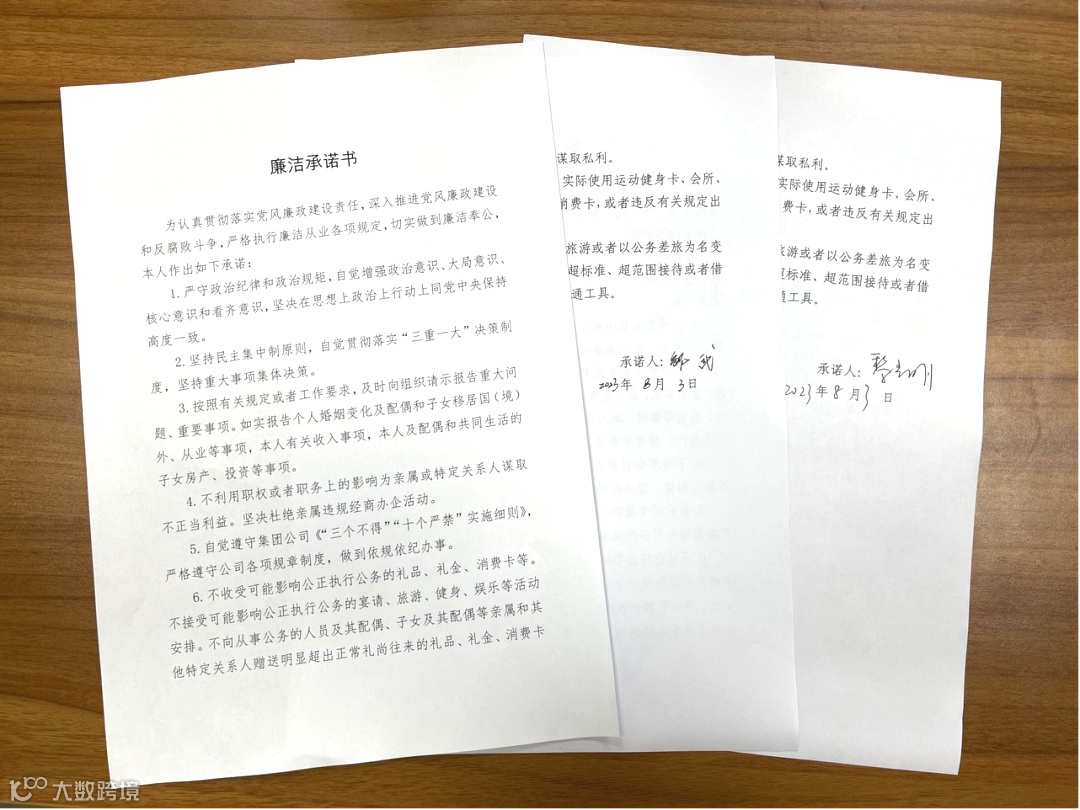 廉洁承诺书
为认真贯彻落实党风廉政建设责任，深入推进党风廉政建设
和反腐败斗争，严格执行廉洁从业各项规定，切实做到廉洁奉公，
本人作出如下承诺：
1.严守政治纪律和政治规矩，自觉增强政治意识、大局意识、
核心意识和看齐意识，坚决在思想上政治上行动上同党中央保持
高度一致。
2.坚持民主集中制原则，自觉贯彻落实“三重一大”决策制
度，坚持重大事项集体决策。
3.按照有关规定或者工作要求，及时向组织请示报告重大问
题、重要事项。如实报告个人婚姻变化及配偶和子女移居国（境）
外、从业等事项，本人有关收入事项，本人及配偶和共同生活的
子女房产、投资等事项。
4.不利用职权或者职务上的影响为亲属或特定关系人谋取
不正当利益。坚决杜绝亲属违规经商办企活动。
5.自觉遵守集团公司《“三个不得”“十个严禁”实施细则》，
严格遵守公司各项规章制度，做到依规依纪办事。
6.不收受可能影响公正执行公务的礼品、礼金、消费卡等。
不接受可能影响公正执行公务的宴请、旅游、健身、娱乐等活动
安排。不向从事公务的人员及其配偶、子女及其配偶等亲属和其
他特定关系人赠送明显超出正常礼尚往来的礼品、礼金、消费卡
谋取私利。
实际使用运动健身卡、会所、
消费卡，或者违反有关规定出
旅游或者以公务差旅为名变
超标准、超范围接待或者借
通工具。
承诺人：
2023年8月3日
谋取私利。
实际使用运动健身卡、会所、
费卡，或者违反有关规定出
旅游或者以公务差旅为名变
超标准、超范围接待或者借
通工具。
承诺人：
2023年8月3日
大数跨境